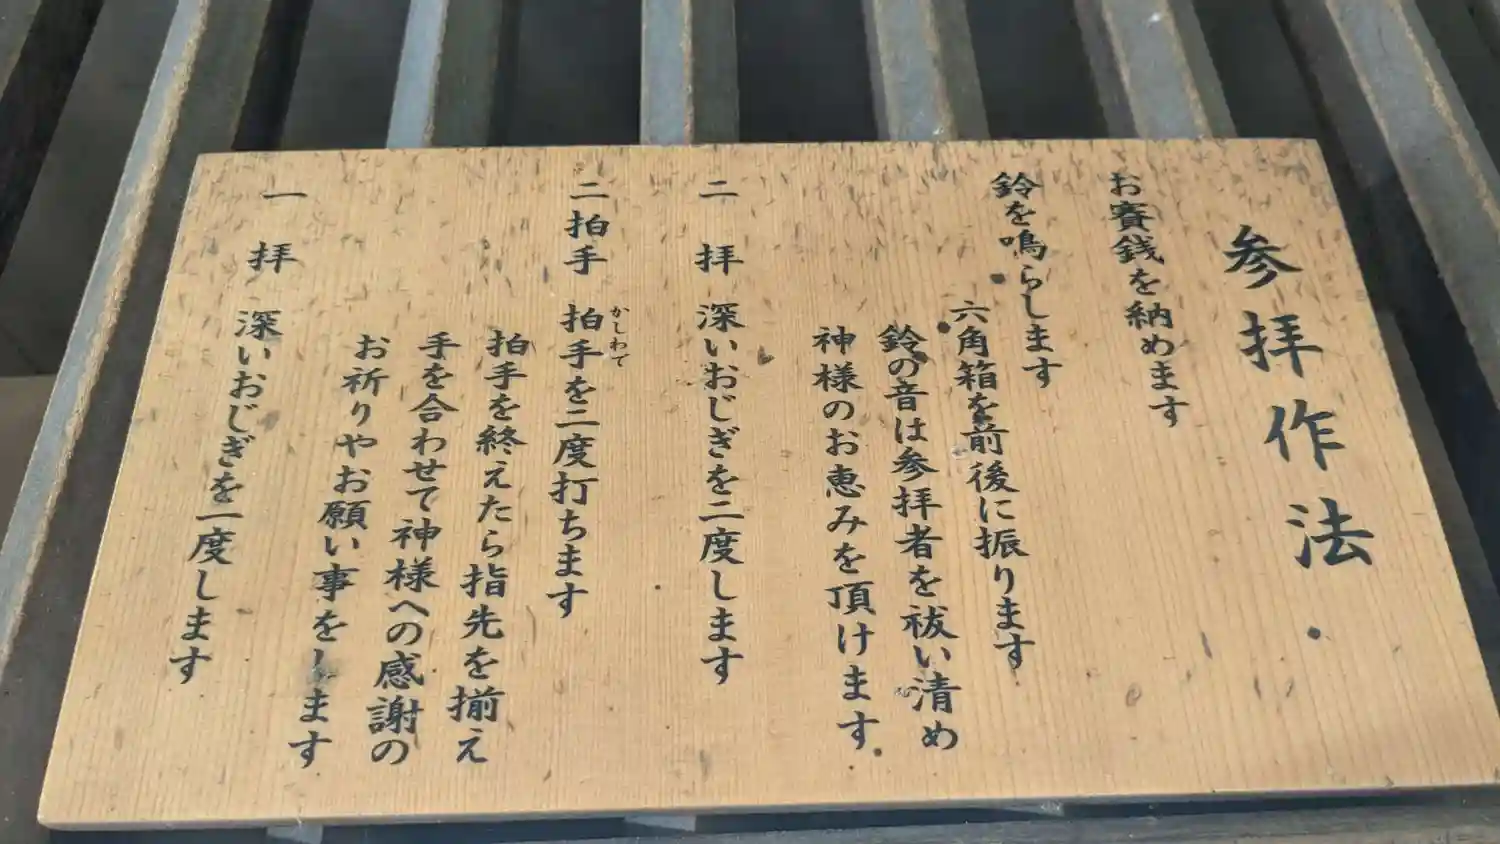 参拝作法
お賽銭を納めます
鈴を鳴らします
六角箱を前後に振ります
鈴の音は参拝者を祓い清め
神様のお恵みを頂けます
二 拝 深いおじぎを二度します
二拍手 拍手を二度打ちます
かしわで
拍手を終えたら指先を揃え
手を合わせて神様への感謝の
お祈りやお願い事をします
一 拝 深いおじぎを一度します